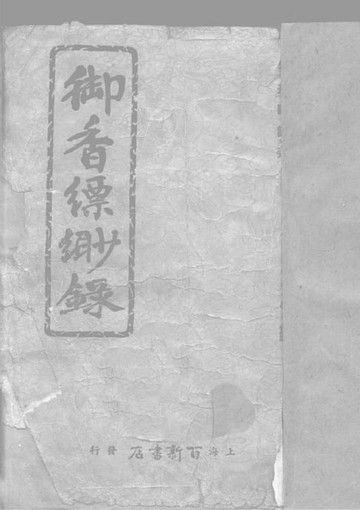 御香縹緲錄
上海百新書店發行